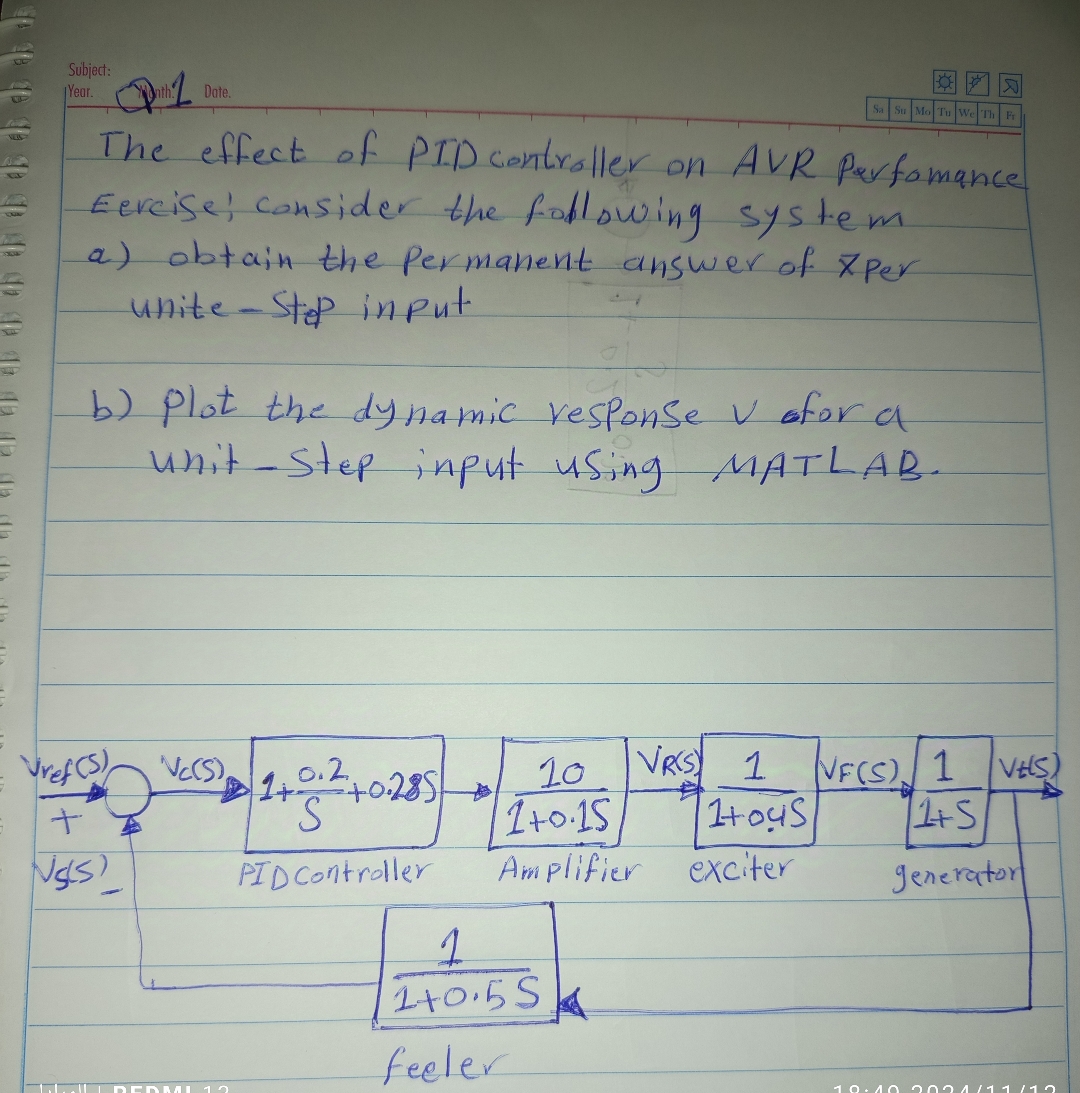 Subject:
Year. Month. Date.
Q1
Sa Su Mo Tu We Th Fr
The effect of PID controller on AVR Perfomance
Eercise; consider the following system
a) obtain the permanent answer of per
unite - Step input
b) plot the dynamic response v for a
unit - step input using MATLAB.
Vref(S) Vc(S) 1+ 0.2/S +0.28S 10/1+0.1S VR(S) 1/1+0.4S VF(S) 1/1+S Vt(S)
+
Vs(S) - PID controller Amplifier exciter generator
1/1+0.5S
feeler
REDMI 12
18:49 2024/11/12